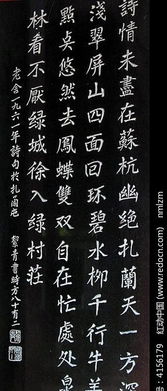 詩情未盡在蘇杭幽絕扎蘭天一方深
淺翠屏山四面回环碧水柳千行牛羊
點点悠然去鳳蝶雙双自在忙處处泉
林看不厭绿城徐入绿村莊
老舍一九六一年詩句於扎兰屯
黎青書時方八十有二
红动中国 www.redocn.com nmlzm
编号:4156179